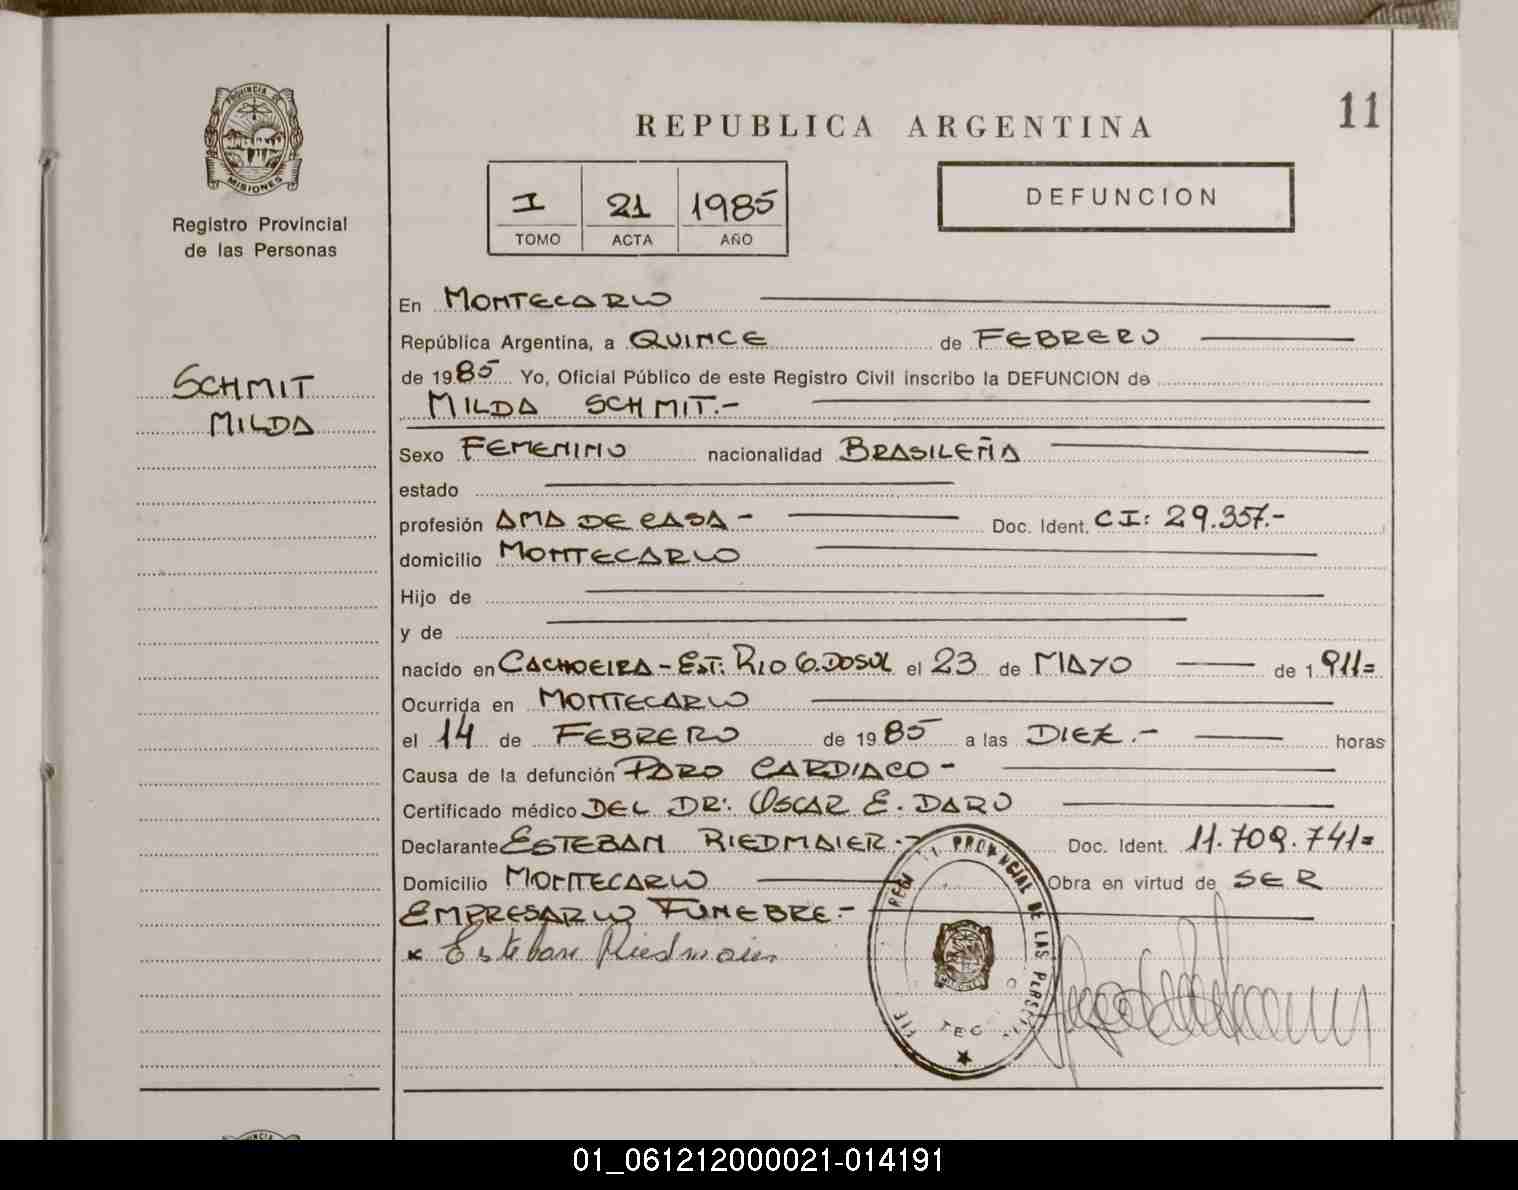 PROVINCIA DE
MISIONES
Registro Provincial
de las Personas
SCHMIT
MILDA
11
REPUBLICA ARGENTINA
I 21 1985
TOMO ACTA AÑO
DEFUNCION
En MONTECARLO
República Argentina, a QUINCE de FEBRERO
de 1985 Yo, Oficial Público de este Registro Civil inscribo la DEFUNCION de
MILDA SCHMIT.-
Sexo FEMENINO nacionalidad BRASILEÑA
estado
profesión AMA DE CASA - Doc. Ident. CI: 29.357.-
domicilio MONTECARLO
Hijo de
y de
nacido en CACHOEIRA - EST: RIO G. DO SUL el 23 de MAYO de 1911=
Ocurrida en MONTECARLO
el 14 de FEBRERO de 1985 a las DIEZ.- horas
Causa de la defunción PARO CARDIACO -
Certificado médico DEL DR: OSCAR E. DARU
Declarante ESTEBAN RIEDMAIER.- Doc. Ident. 11.709.741=
Domicilio MONTECARLO Obra en virtud de SER
EMPRESARIO FUNEBRE.-
Esteban Riedmaier
PROVINCIAL DE LAS
01_061212000021-014191